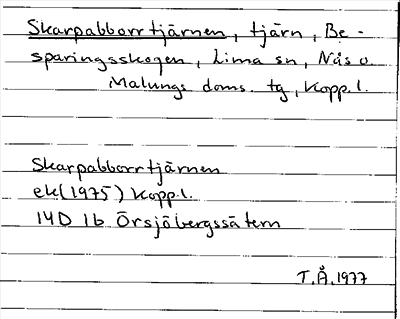 Skarpabborrtjärnen, tjärn, Be-
sparingsskogen, Lima sn, Nås o.
Malungs doms. tg, Kopp. l.
Skarpabborrtjärnen
ek (1975) Kopp.l.
14D 1b Örsjöbergssätern
T.Å. 1977